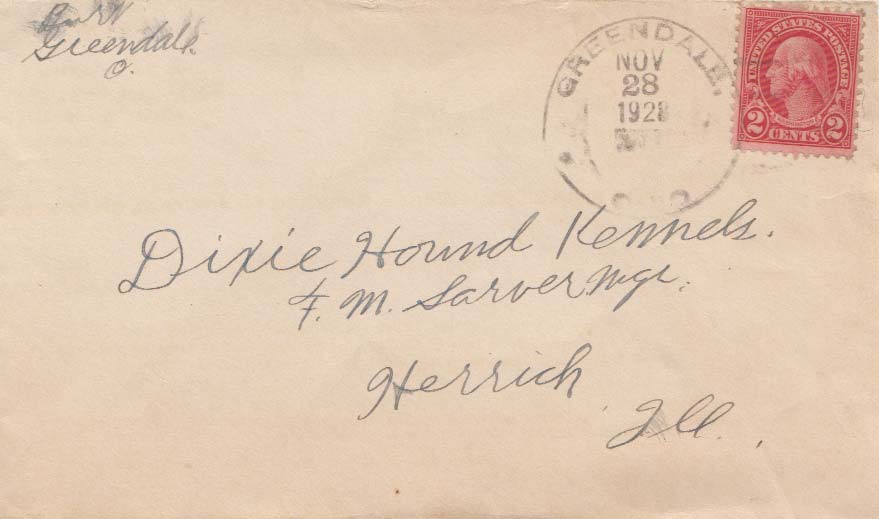 Greendale
O.
GREENDALE,
NOV
28
1928
UNITED STATES POSTAGE
2 CENTS 2
Dixie Hound Kennels.
F. M. Sarver Mgr.
Herrick
Ill.